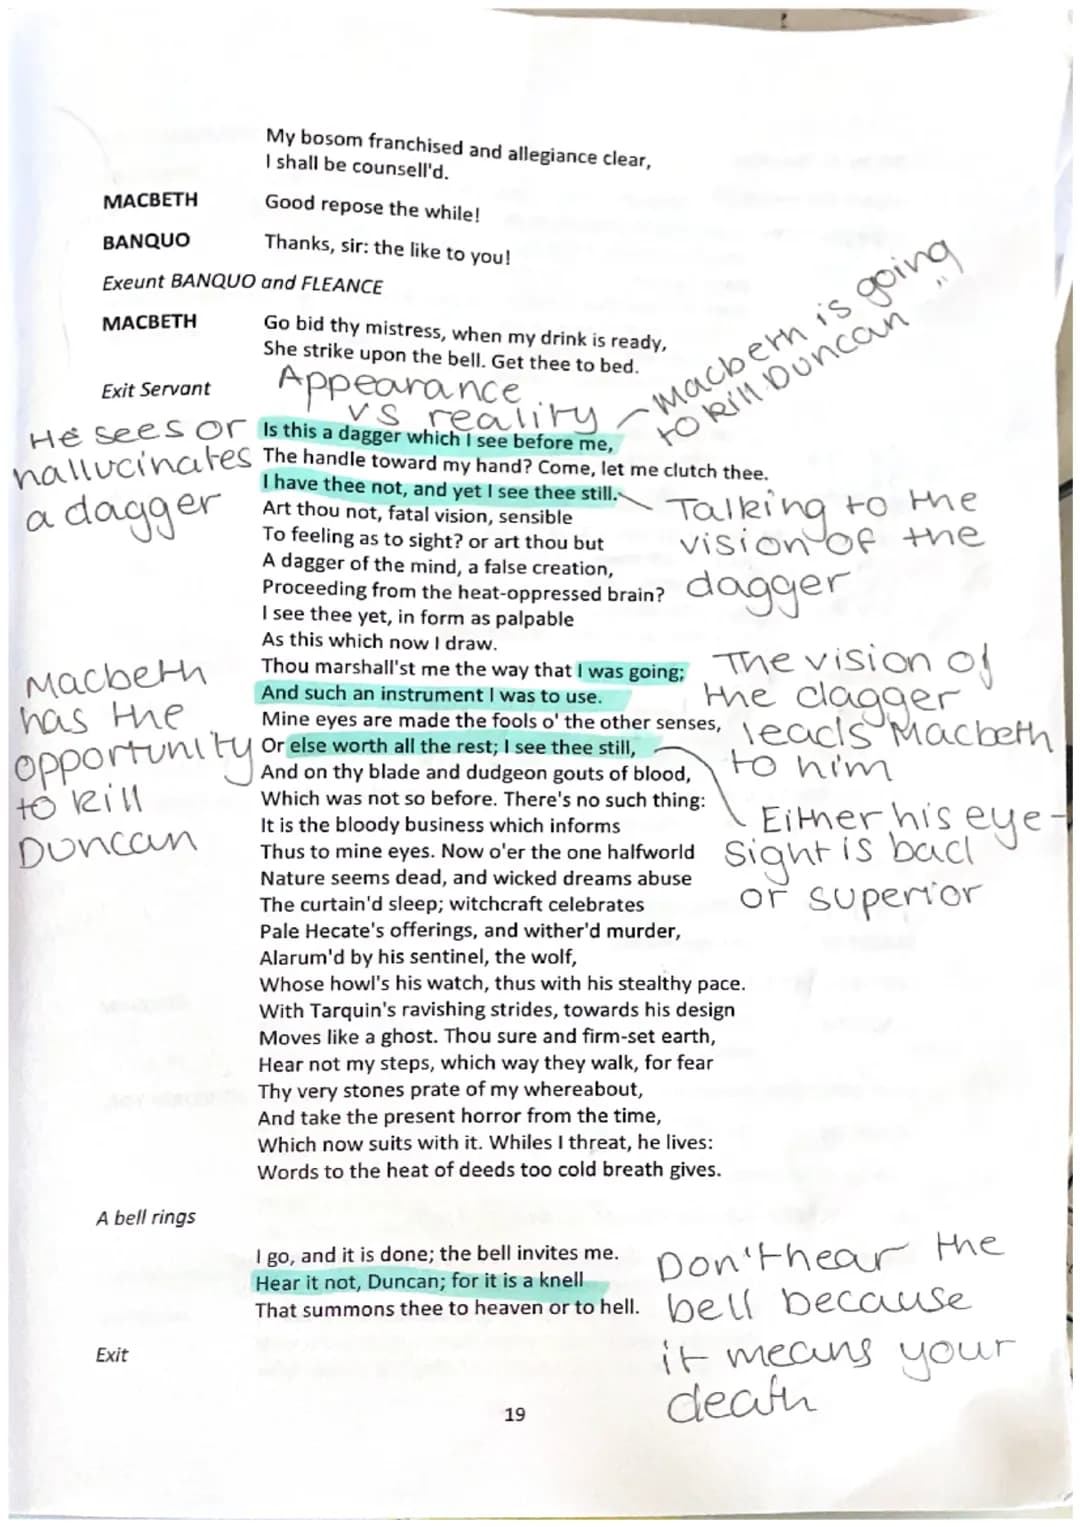 My bosom franchised and allegiance clear,
I shall be counsell'd.
MACBETH Good repose the while!
BANQUO Thanks, sir: the like to you!
Exeunt BANQUO and FLEANCE
MACBETH Go bid thy mistress, when my drink is ready,
She strike upon the bell. Get thee to bed.
Exit Servant
Appearance
vs reality
Macbeth is going
to kill Duncan
He sees or
hallucinates
a dagger
Is this a dagger which I see before me,
The handle toward my hand? Come, let me clutch thee.
I have thee not, and yet I see thee still.
Art thou not, fatal vision, sensible
To feeling as to sight? or art thou but
A dagger of the mind, a false creation,
Proceeding from the heat-oppressed brain?
I see thee yet, in form as palpable
As this which now I draw.
Talking to the
vision of the
dagger
Thou marshall'st me the way that I was going;
And such an instrument I was to use.
Mine eyes are made the fools o' the other senses,
Or else worth all the rest; I see thee still,
And on thy blade and dudgeon gouts of blood,
Which was not so before. There's no such thing:
It is the bloody business which informs
Thus to mine eyes. Now o'er the one halfworld
Nature seems dead, and wicked dreams abuse
The curtain'd sleep; witchcraft celebrates
Pale Hecate's offerings, and wither'd murder,
Alarum'd by his sentinel, the wolf,
Whose howl's his watch, thus with his stealthy pace.
With Tarquin's ravishing strides, towards his design
Moves like a ghost. Thou sure and firm-set earth,
Hear not my steps, which way they walk, for fear
Thy very stones prate of my whereabout,
And take the present horror from the time,
Which now suits with it. Whiles I threat, he lives:
Words to the heat of deeds too cold breath gives.
Macbeth
has the
opportunity
to kill
Duncan
The vision of
the dagger
leads Macbeth
to him
Either his eye-
sight is bad
or superior
A bell rings
I go, and it is done; the bell invites me.
Hear it not, Duncan; for it is a knell
That summons thee to heaven or to hell.
Don't hear the
bell because
it means your
death
Exit
19